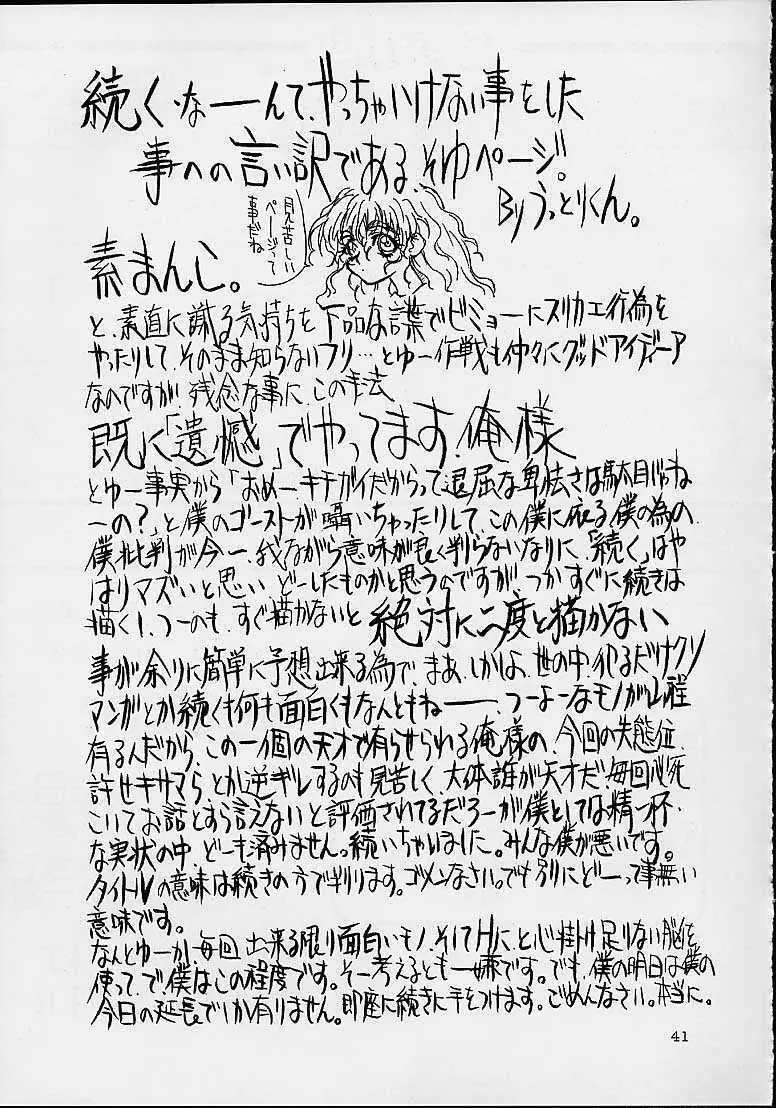 続く、なーーんて、やっちゃいけない事をした
事への言い訳である、そゆページ。
Byうっとりくん。
見苦しい
ページって
事だね
素まんじ。
と、素直に謝る気持ちを下品な言葉でビミョーにスリカエ行為を
やったりして、そのまま知らないフリ…とゆー作戦も仲々にグッドアイディーア
なのですが、残念な事に、この手法
既に「遺憾」でやってます、俺様
とゆー事実から「おめー、キチガイだからって退屈な卑怯さは駄目じゃね
ーの?」と僕のゴーストが囁いちゃったりして、この僕に依る僕の為の、
僕批判が今一、我ながら意味が良く判らないなりに、「続く」はや
はりマズいと思い、どーしたものかと思うのですが、つかすぐに続きは
描く!、つーのも、すぐ描かないと絶対に二度と描かない
事が余りに簡単に予想出来る為で、まあ、しかしよ、世の中、犯るだけクソ
マンガとか続くも何も面白くもなんともねーーー、つーよーなモノが山程
有るんだから、この一個の天才で有らせられる俺様の、今回の失態位、
許せキサマら、とか逆ギレするのも見苦しく、大体誰が天才だ、毎回必死
こいてお話とすら言えないと評価されてるだろーが僕としては精一杯・
な実状の中、どーも済みません。続いちゃいました。みんな僕が悪いです。
タイトルの意味は続きの方で判ります。ゴメンなさい。でも別にどーって事無い
意味です。
なんとゆーか、毎回、出来る限り面白いモノ、そしてHに、と心掛け足りない脳を
使って、で、僕はこの程度です。そー考えるとも一嫌です。でも、僕の明日は僕の
今日の延長でしか有りません。即座に続きに手をつけます。ごめんなさい。本当に。
41